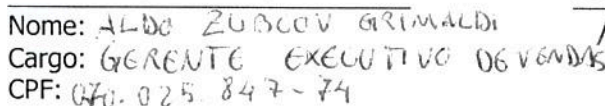 Nome: ALDO ZUBCOV GRIMALDI
Cargo: GERENTE EXECUTIVO DE VENDAS
CPF: 070.025.847-74